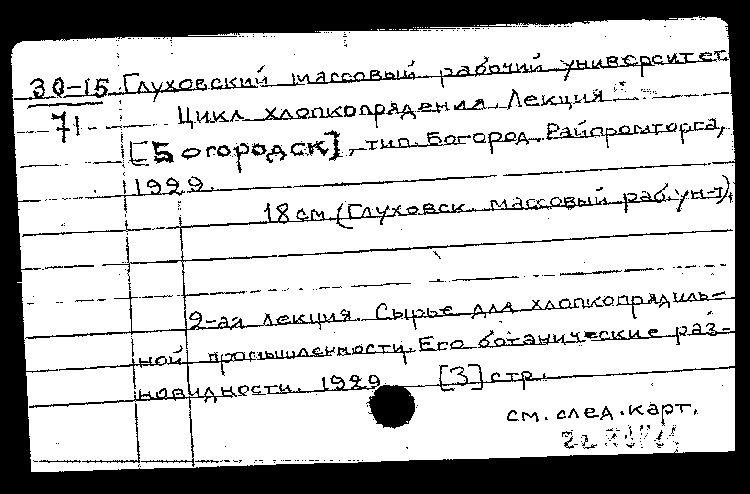 30-15 Глуховский массовый рабочий университет
71 Цикл хлопкопрядения. Лекция
[Богородск], тип. Богород. Райпромторга,
1929.
18 см. (Глуховск. массовый раб. ун-т).
2-ая лекция. Сырье для хлопкопрядиль-
ной промышленности. Его ботанические раз-
новидности. 1929 [3] стр.
см. след. карт.